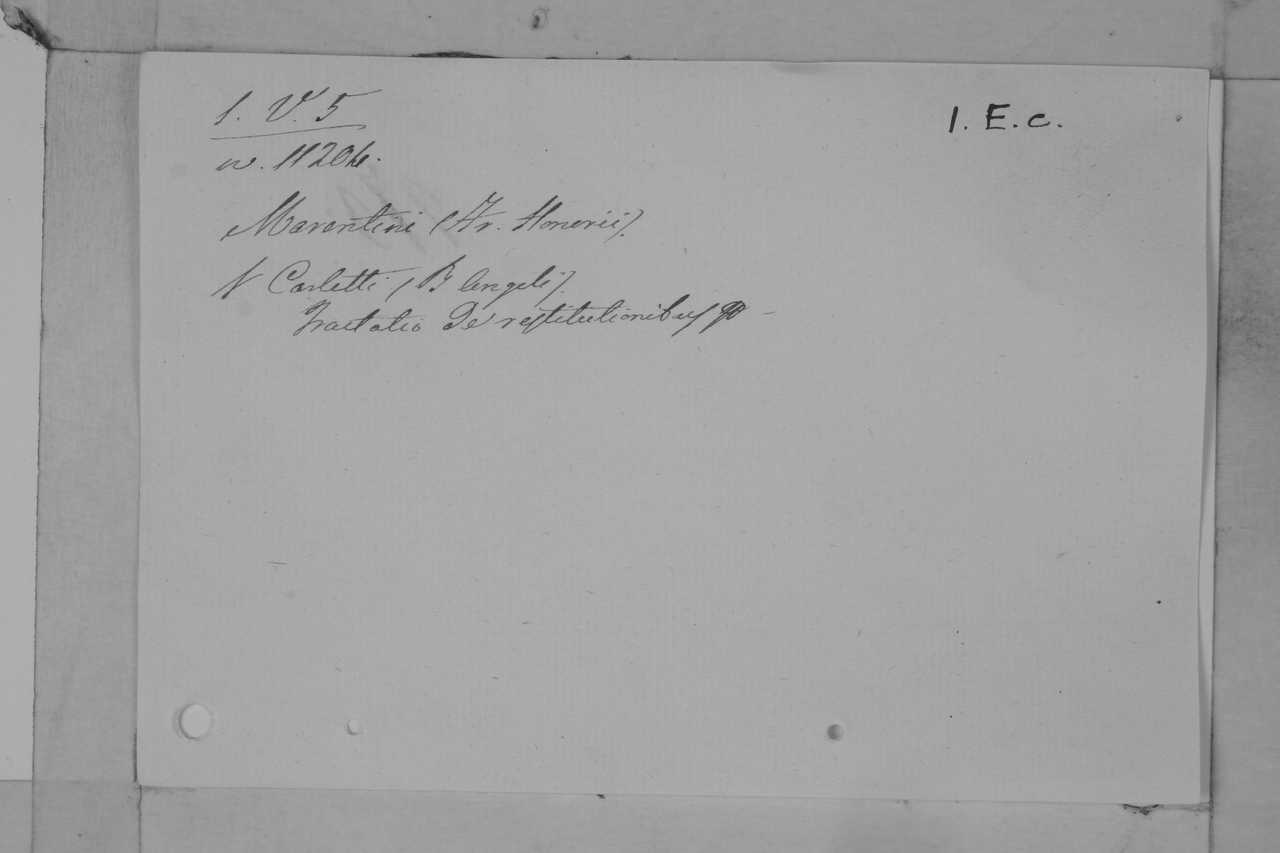 1. V. 5
I. E. c.
w. 11204.
Marentini (Fr. Honorii).
V Carletti (B Angeli).
Tractatio De restitutionibus